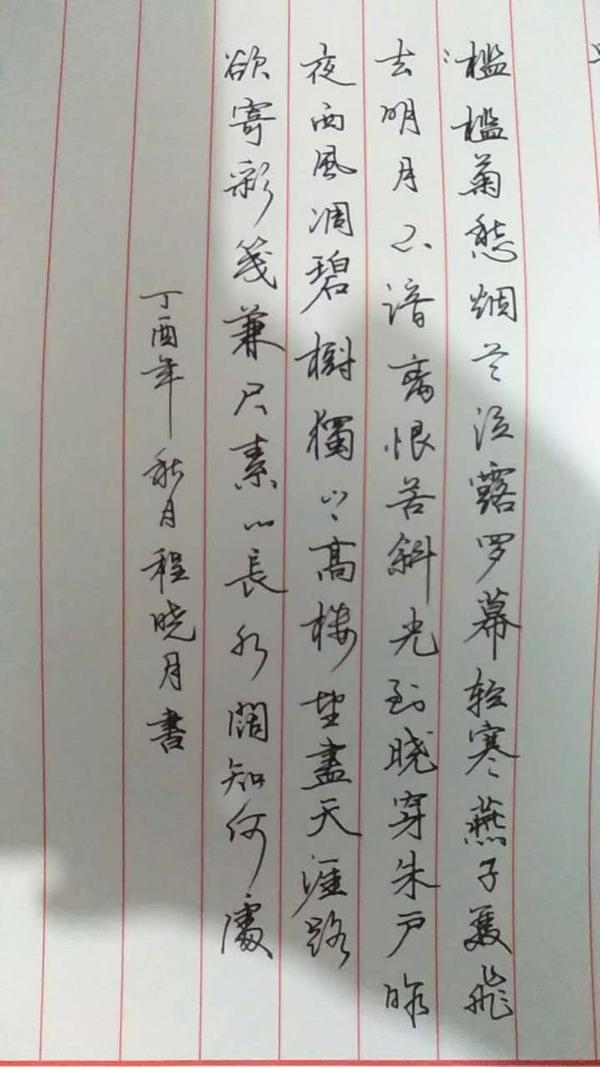 槛槛菊愁烟兰泣露罗幕轻寒燕子雙飛
去明月不谙离恨苦斜光到晓穿朱户昨
夜西風凋碧樹獨上高楼望盡天涯路
欲寄彩笺兼尺素山長水阔知何處
丁酉年秋月程晓月書